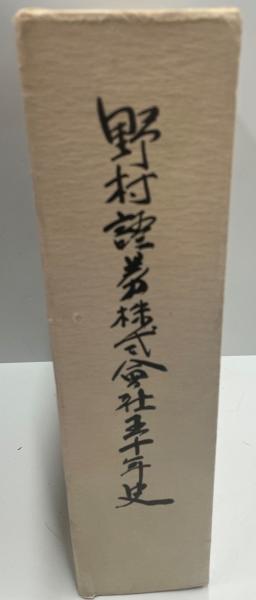 野村證券株式會社五十年史